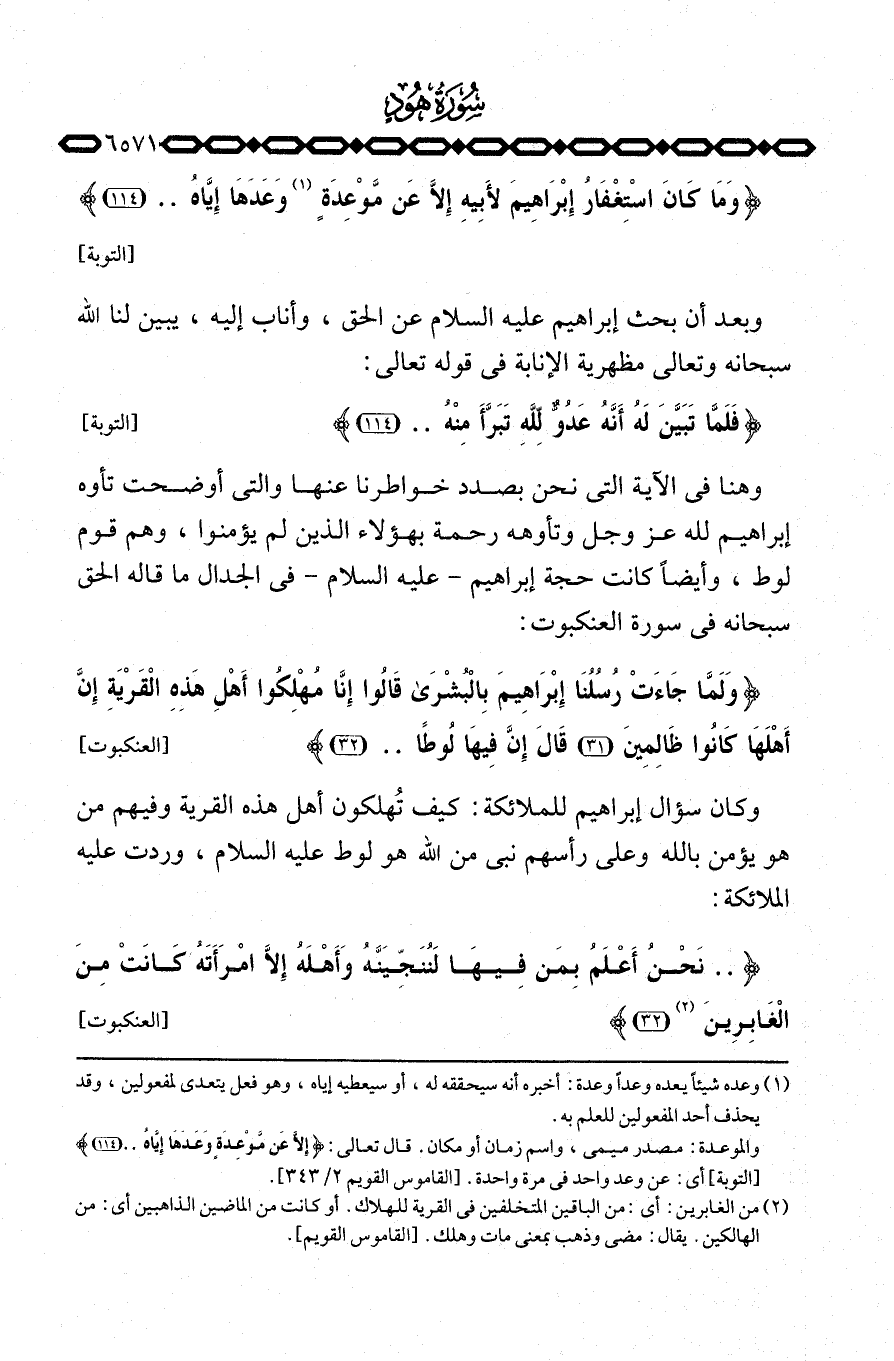 سُورَةُ هُودٍ
٦٥٧١
﴿وَمَا كَانَ اسْتِغْفَارُ إِبْرَاهِيمَ لأَبِيهِ إِلاَّ عَن مَّوْعِدَةٍ (١) وَعَدَهَا إِيَّاهُ .. (١١٤)﴾
[التوبة]
وبعد أن بحث إبراهيم عليه السلام عن الحق ، وأناب إليه ، يبين لنا الله
سبحانه وتعالى مظهرية الإنابة فى قوله تعالى:
﴿فَلَمَّا تَبَيَّنَ لَهُ أَنَّهُ عَدُوٌّ لِّلَّهِ تَبَرَّأَ مِنْهُ .. (١١٤)﴾ [التوبة]
وهنا فى الآية التى نحن بصدد خواطرنا عنها والتى أوضحت تأوه
إبراهيم لله عز وجل وتأوهه رحمة بهؤلاء الذين لم يؤمنوا ، وهم قوم
لوط ، وأيضاً كانت حجة إبراهيم - عليه السلام - فى الجدال ما قاله الحق
سبحانه فى سورة العنكبوت:
﴿وَلَمَّا جَاءَتْ رُسُلُنَا إِبْرَاهِيمَ بِالْبُشْرَىٰ قَالُوا إِنَّا مُهْلِكُوا أَهْلِ هَذِهِ الْقَرْيَةِ إِنَّ
أَهْلَهَا كَانُوا ظَالِمِينَ (٣١) قَالَ إِنَّ فِيهَا لُوطًا .. (٣٢)﴾ [العنكبوت]
وكان سؤال إبراهيم للملائكة: كيف تُهلكون أهل هذه القرية وفيهم من
هو يؤمن بالله وعلى رأسهم نبى من الله هو لوط عليه السلام ، وردت عليه
الملائكة:
﴿.. نَحْنُ أَعْلَمُ بِمَن فِيهَا لَنُنَجِّيَنَّهُ وَأَهْلَهُ إِلاَّ امْرَأَتَهُ كَانَتْ مِنَ
الْغَابِرِينَ (٢) (٣٢)﴾ [العنكبوت]
(١) وعده شيئاً يعده وعداً وعدة: أخبره أنه سيحققه له ، أو سيعطيه إياه ، وهو فعل يتعدى لمفعولين ، وقد
يحذف أحد المفعولين للعلم به.
والموعدة: مصدر ميمى ، واسم زمان أو مكان. قال تعالى: ﴿إِلاَّ عَن مَّوْعِدَةٍ وَعَدَهَا إِيَّاهُ .. (١١٤)﴾
[التوبة] أى: عن وعد واحد فى مرة واحدة. [القاموس القويم ٢/ ٣٤٣].
(٢) من الغابرين: أى: من الباقين المتخلفين فى القرية للهلاك. أو كانت من الماضين الذاهبين أى: من
الهالكين. يقال: مضى وذهب بمعنى مات وهلك. [القاموس القويم].